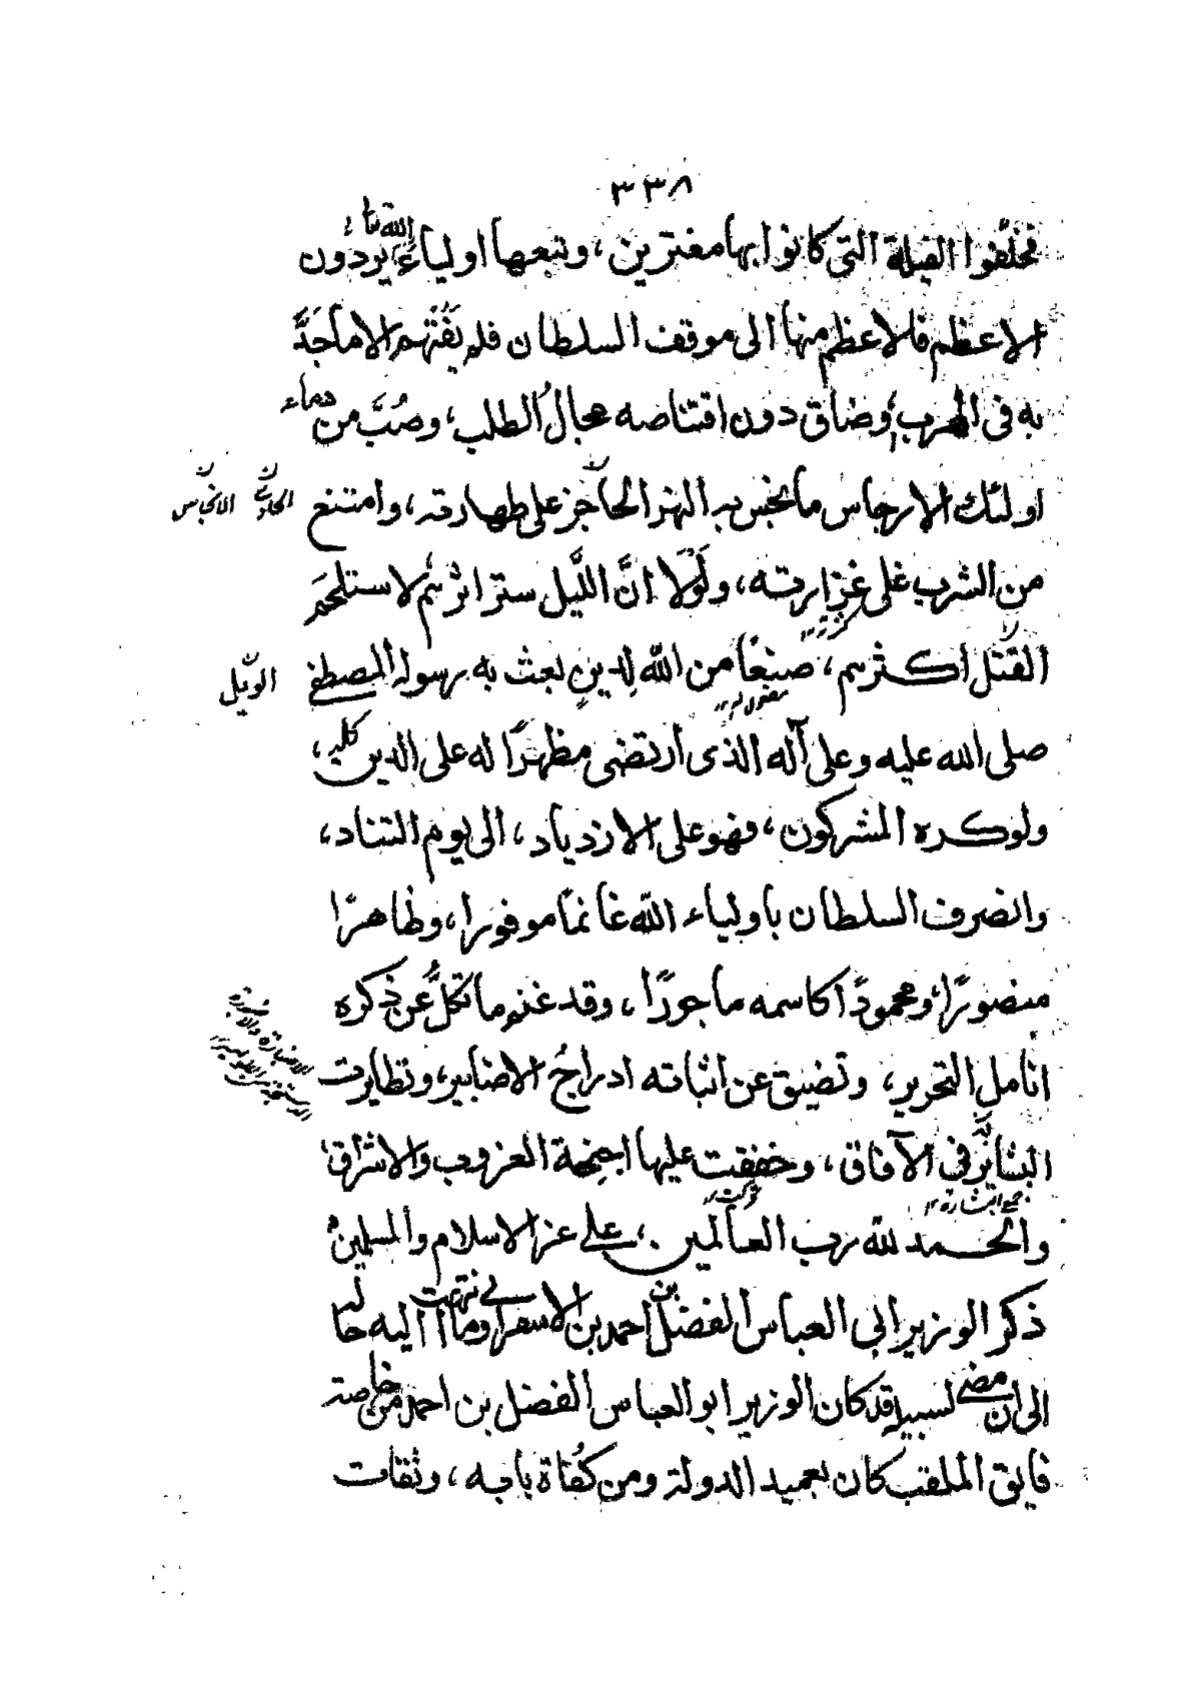 ٣٣٨
فخلّفوا الفيلة التى كانوا بها مغترين، وتبعها اولياء الله تعالى يردون
الاعظم فالاعظم منها الى موقف السلطان فلم يفتهم الا ما جَدَّ
به فى الهرب، وضاق دون اقتناصه مجال الطلب، وصُبَّ من دماء
اولئك الارجاس ما نجس به النهر الجاجز على طهارته، وامتنع
الجارى الانجاس
من الشرب على غزارته، ولَوْلا انَّ اللَّيل ستر اثرهم لاستلحَم
القتل اكثرهم، صنعًا من الله لِدينٍ بعث به رسوله المصطفى
الويل
صلى الله عليه وعلى آله الذى ارتضى مظهرًا له على الدين كله،
ولو كره المشركون، فهو على الازدياد، الى يوم التناد،
وانصرف السلطان باولياء الله غانمًا موفورا، وظاهرًا
منصورًا، ومحمودًا كاسمه ماجورًا، وقد غنم ما تكلُّ عن ذكره
انامل التحرير، وتضيق عن اثباته ادراجُ الاضابير، وتطايرت
البشائر فى الآفاق، وخفقت عليها اجنحة الغروب والاشراق،
جمع
والحمد لله رب العالمين، على عز الاسلام والمسلمين
ذكر الوزير ابى العباس الفضل بن احمد بن الاسفراينى وما انتهت اليه حاله
الى ان مضى لسبيله قد كان الوزير ابو العباس الفضل بن احمد من خاصة
فايق الملقب كان بعميد الدولة ومن كُفاة بابه، وثقات